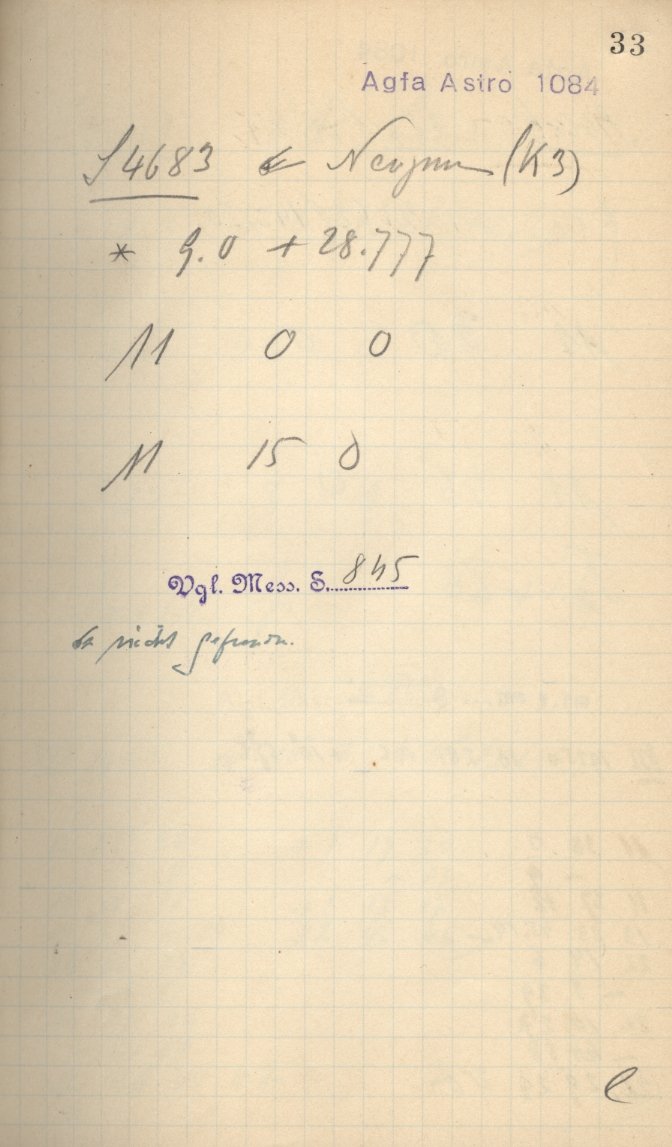 33
Agfa Astro 1084
S 4683 ← Neujmin (K3)
* 9.0 + 28.777
11 0 0
11 15 0
Vgl. Mess. S. 845
nicht gefunden.